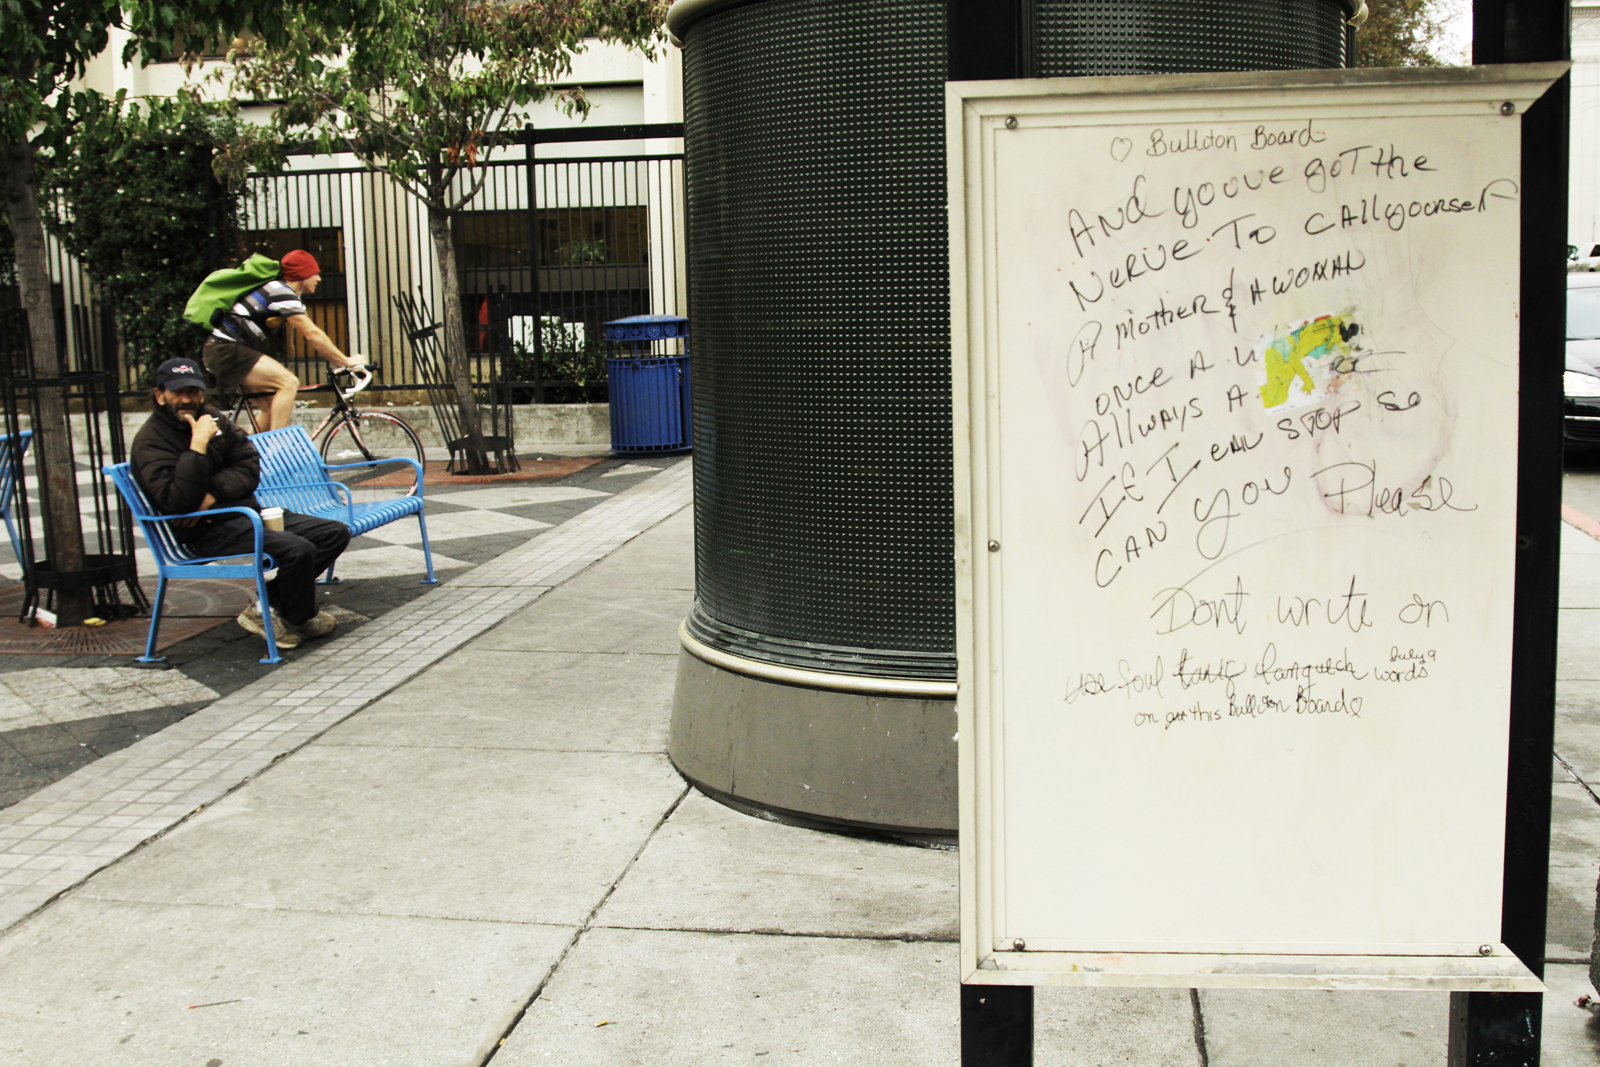 ♡ Bulliton Board
And yoove got the
Nerve To CAll yourself
A mother & A WOMAN
ONCE A
Allways A
If I CAN STOP SO
CAN YOU Please
Dont write on
use foul languech words
on this Bulliton Board ♡